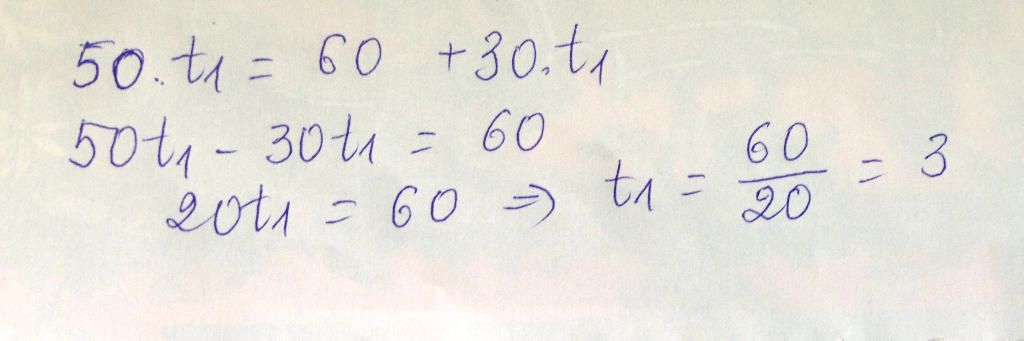 50.t1 = 60 +30.t1
50t1 - 30t1 = 60
20t1 = 60 => t1 = 60/20 = 3